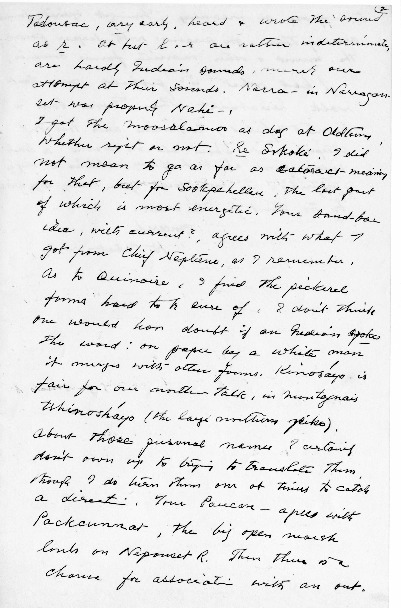 Tadousac, very early, heard & wrote the sound
as r. At but l & r are rather indeterminate,
are hardly Indian sounds, merely our
attempt at their sounds. Narra- in Narragan-
set was properly Nahi-.
I got the moosolamoo as dog at Oldtown,
whether right or not. Re Sokoki. I did
not mean to go as far as cataract meaning
for that, but for Sookpehellak, the last part
of which is most energetic. Your
idea, with current?, agrees with what I
got from Chief Neptune, as I remember.
As to Quinoire, I find the pickerel
forms hard to be sure of. I don't think
one would have doubt if an Indian spoke
the word: on paper by a white man
it merges with other forms. Kinosáyo is
fair for our northern talk, in Montagnais
tshinosháyo (the large northern pike).
About those personal names, I certainly
don't own up to trying to translate them,
though I do turn them over at times to catch
a. Your Paucan- agrees with
Packcunnat, the big open marsh
lands on Neponset R. Then there is a
chance for association with an out-